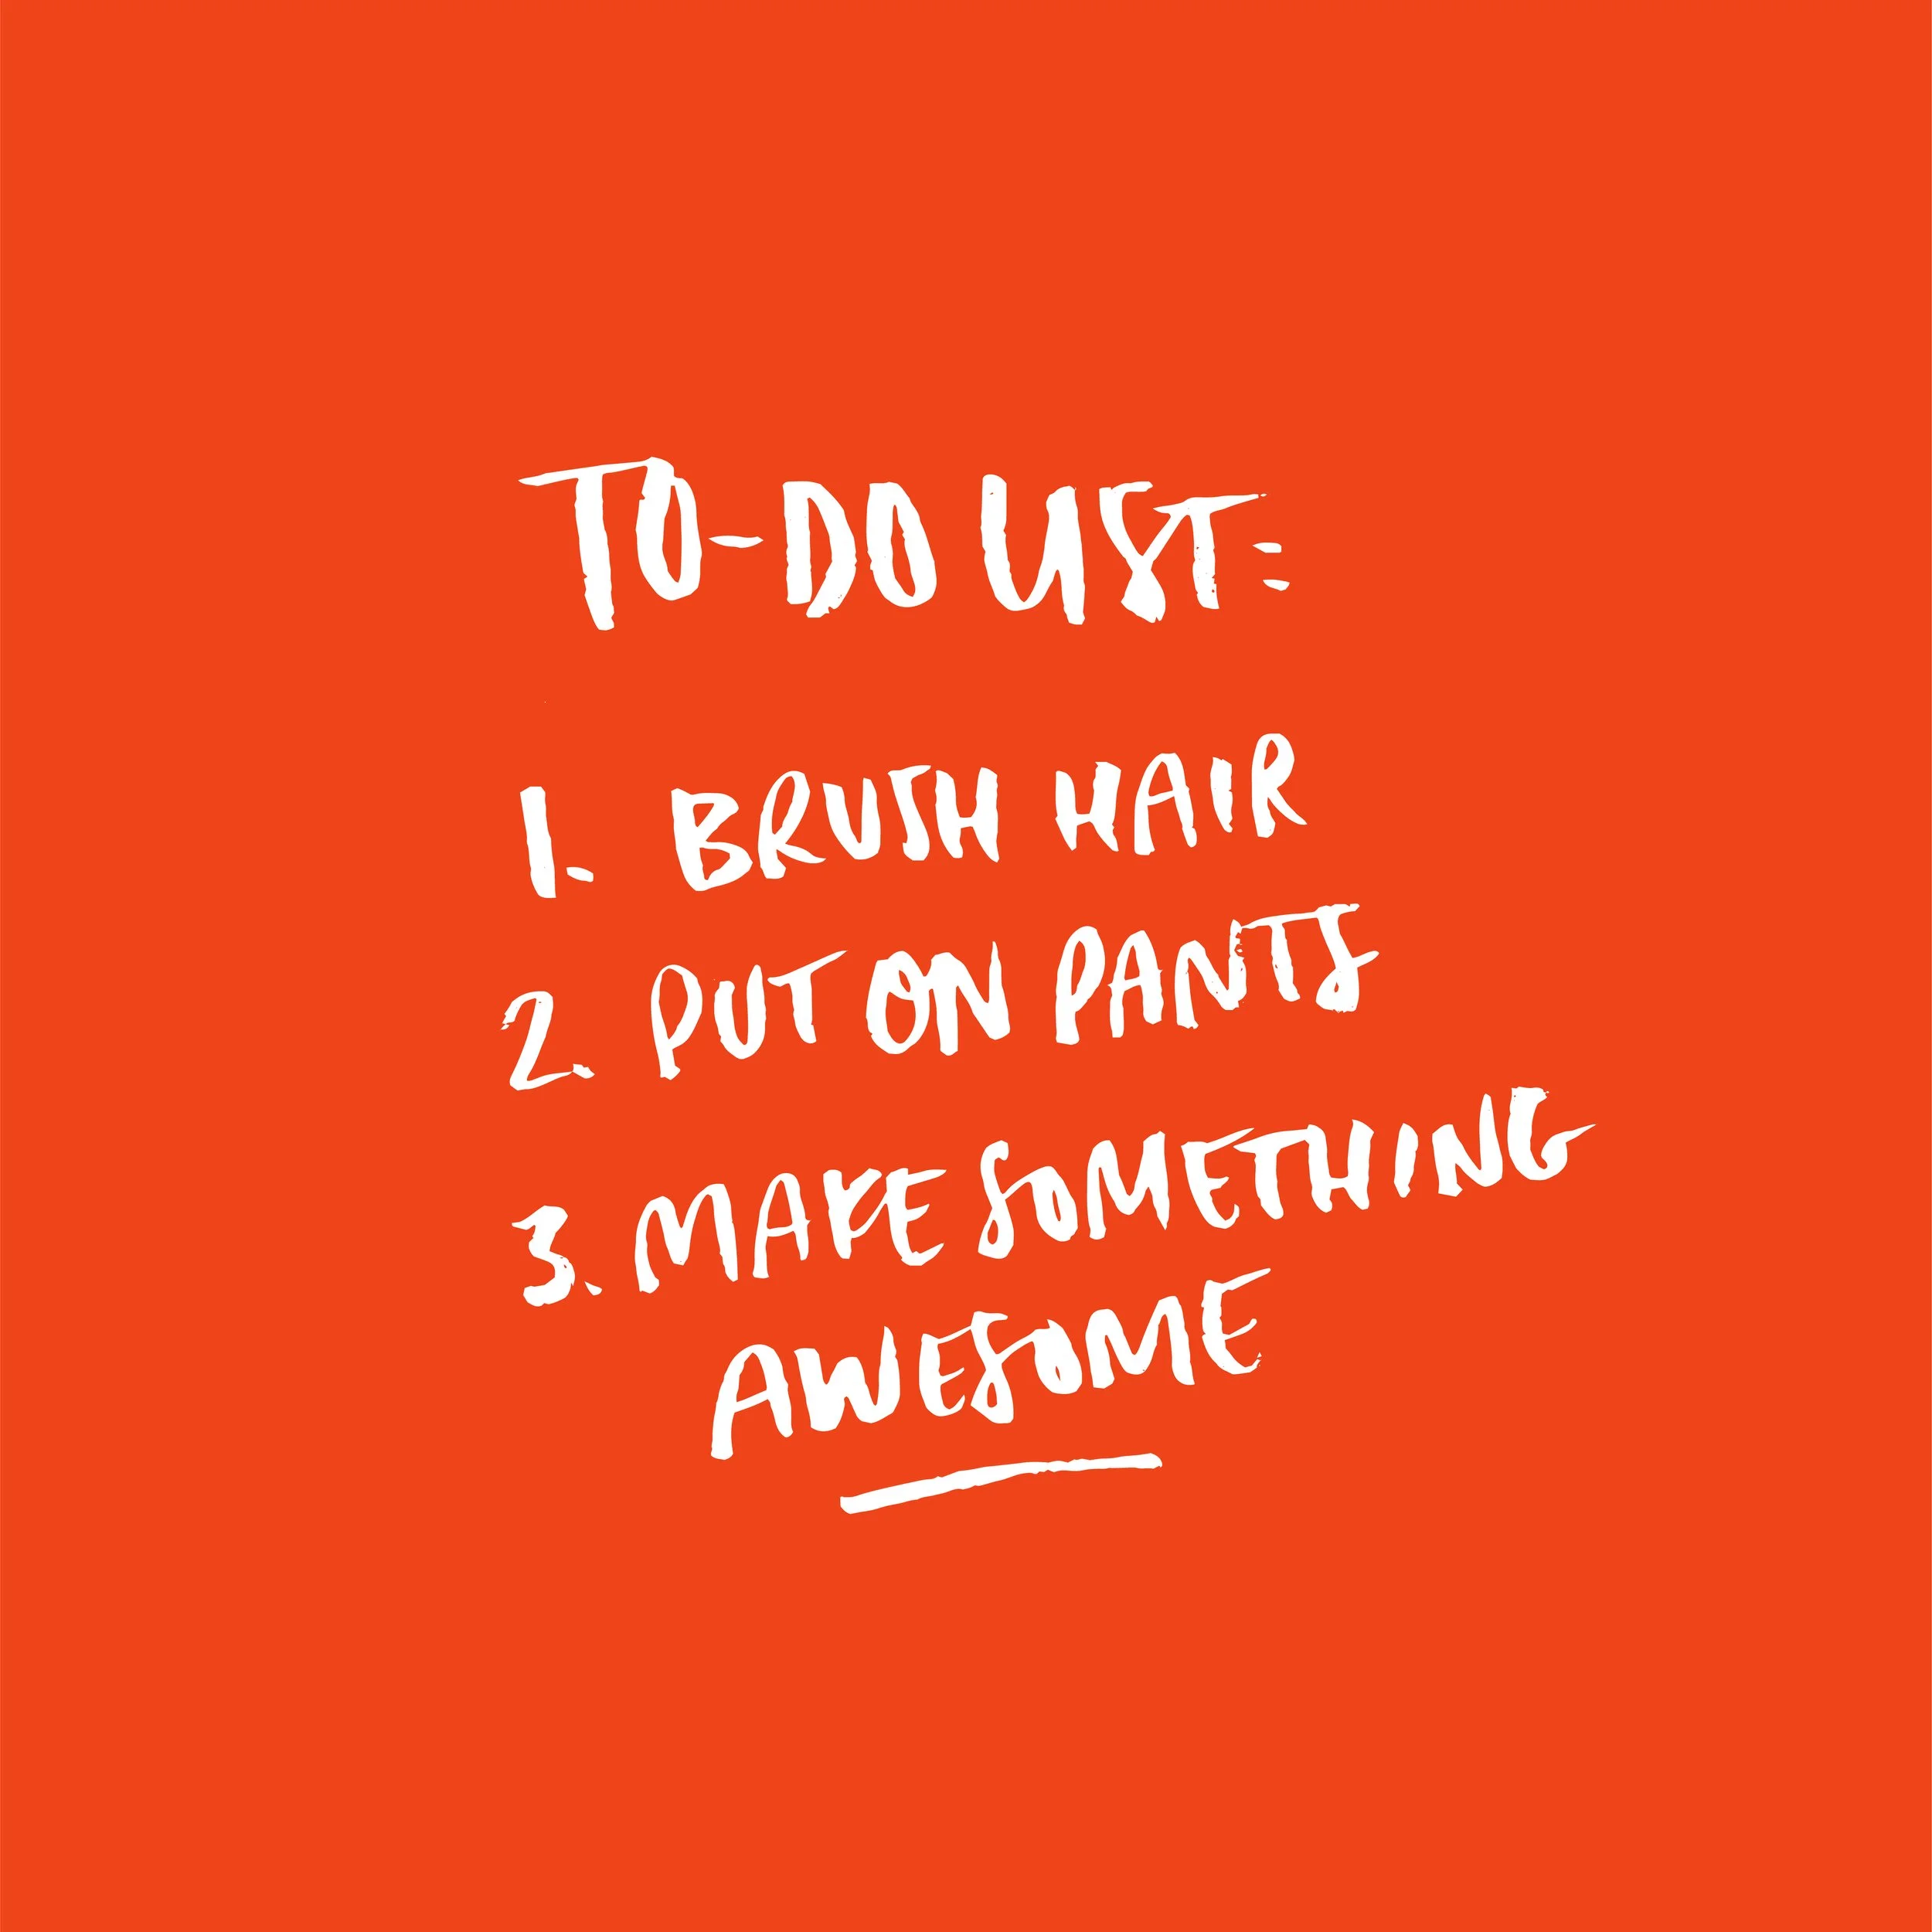 TO-DO LIST:
1. BRUSH HAIR
2. PUT ON PANTS
3. MAKE SOMETHING
AWESOME